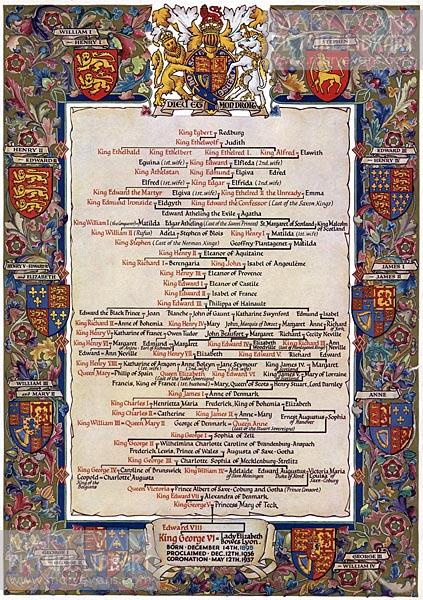 WILLIAM I
HENRY I
STEPHEN
DIEU ET MON DROIT
King Egbert Redburg
King Ethelwolf Judith
King Ethelbald King Ethelbert King Ethelred I. King Alfred Elswith
HENRY II
EDWARD II
Eguina (1st. wife) King Edward Elfleda (2nd. wife)
EDWARD III
HENRY IV
King Athelstan King Edmund Elgiva Edred
Elfred (1st. wife) King Edgar Elfrida (2nd. wife)
King Edward the Martyr Elgiva (1st. wife) King Ethelred II the Unready Emma
King Edmund Ironside Eldgyth King Edward the Confessor (Last of the Saxon Kings)
Edward Atheling the Exile Agatha
King William I (the Conqueror) Matilda Edgar Atheling (Last of the Saxon Princes) St. Margaret of Scotland King Malcolm of Scotland
King William II (Rufus) Adela Stephen of Blois King Henry I. Matilda (1st. wife)
King Stephen (Last of the Norman Kings) Geoffrey Plantagenet Matilda
King Henry II Eleanor of Aquitaine
HENRY V - EDWARD VI
and ELIZABETH
JAMES I
JAMES II
King Richard I Berengaria King John Isabel of Angoulême
King Henry III Eleanor of Provence
King Edward I Eleanor of Castile
King Edward II Isabel of France
King Edward III Philippa of Hainault
Edward the Black Prince Joan Blanche John of Gaunt Katharine Swynford Edmund Isabel
King Richard II Anne of Bohemia King Henry IV Mary John, Marquis of Dorset Margaret Anne Richard
King Henry V Katharine of France Owen Tudor John Beaufort Margaret Richard Cecily Neville
King Henry VI Margaret Edmund Margaret King Edward IV Elizabeth Woodville King Richard III Anne Neville
Edward Ann Neville King Henry VII Elizabeth King Edward V. Richard Edward
WILLIAM III
and MARY II
ANNE
King Henry VIII Katharine of Aragon Anne Boleyn Jane Seymour James IV. Margaret
Queen Mary Philip of Spain Queen Elizabeth King Edward VI King James V Mary of Lorraine
Francis, King of France (1st. husband) Mary, Queen of Scots Henry Stuart, Lord Darnley
King James I Anne of Denmark
King Charles I Henrietta Maria Frederick, King of Bohemia Elizabeth
King Charles II Catherine King James II Anne Mary Ernest Augustus Sophia of Hanover
King William III Queen Mary II George of Denmark Queen Anne (Last of the Stuart Sovereigns)
King George I Sophia of Zell
King George II Wilhelmina Charlotte Caroline of Brandenburg-Anspach
Frederick Lewis, Prince of Wales Augusta of Saxe-Gotha
King George III Charlotte Sophia of Mecklenburg-Strelitz
King George IV Caroline of Brunswick King William IV Adelaide of Saxe Meiningen Edward Augustus Duke of Kent Victoria Maria Louisa of Saxe-Coburg
Leopold King of the Belgians Charlotte Augusta
Queen Victoria Prince Albert of Saxe-Coburg and Gotha (Prince Consort)
King Edward VII Alexandra of Denmark
King George V Princess Mary of Teck
Edward VIII
King George VI Lady Elizabeth Bowes Lyon
BORN · DECEMBER 14TH. 1895
PROCLAIMED · DEC. 12TH. 1936
CORONATION · MAY 12TH. 1937
GEORGE III
WILLIAM IV